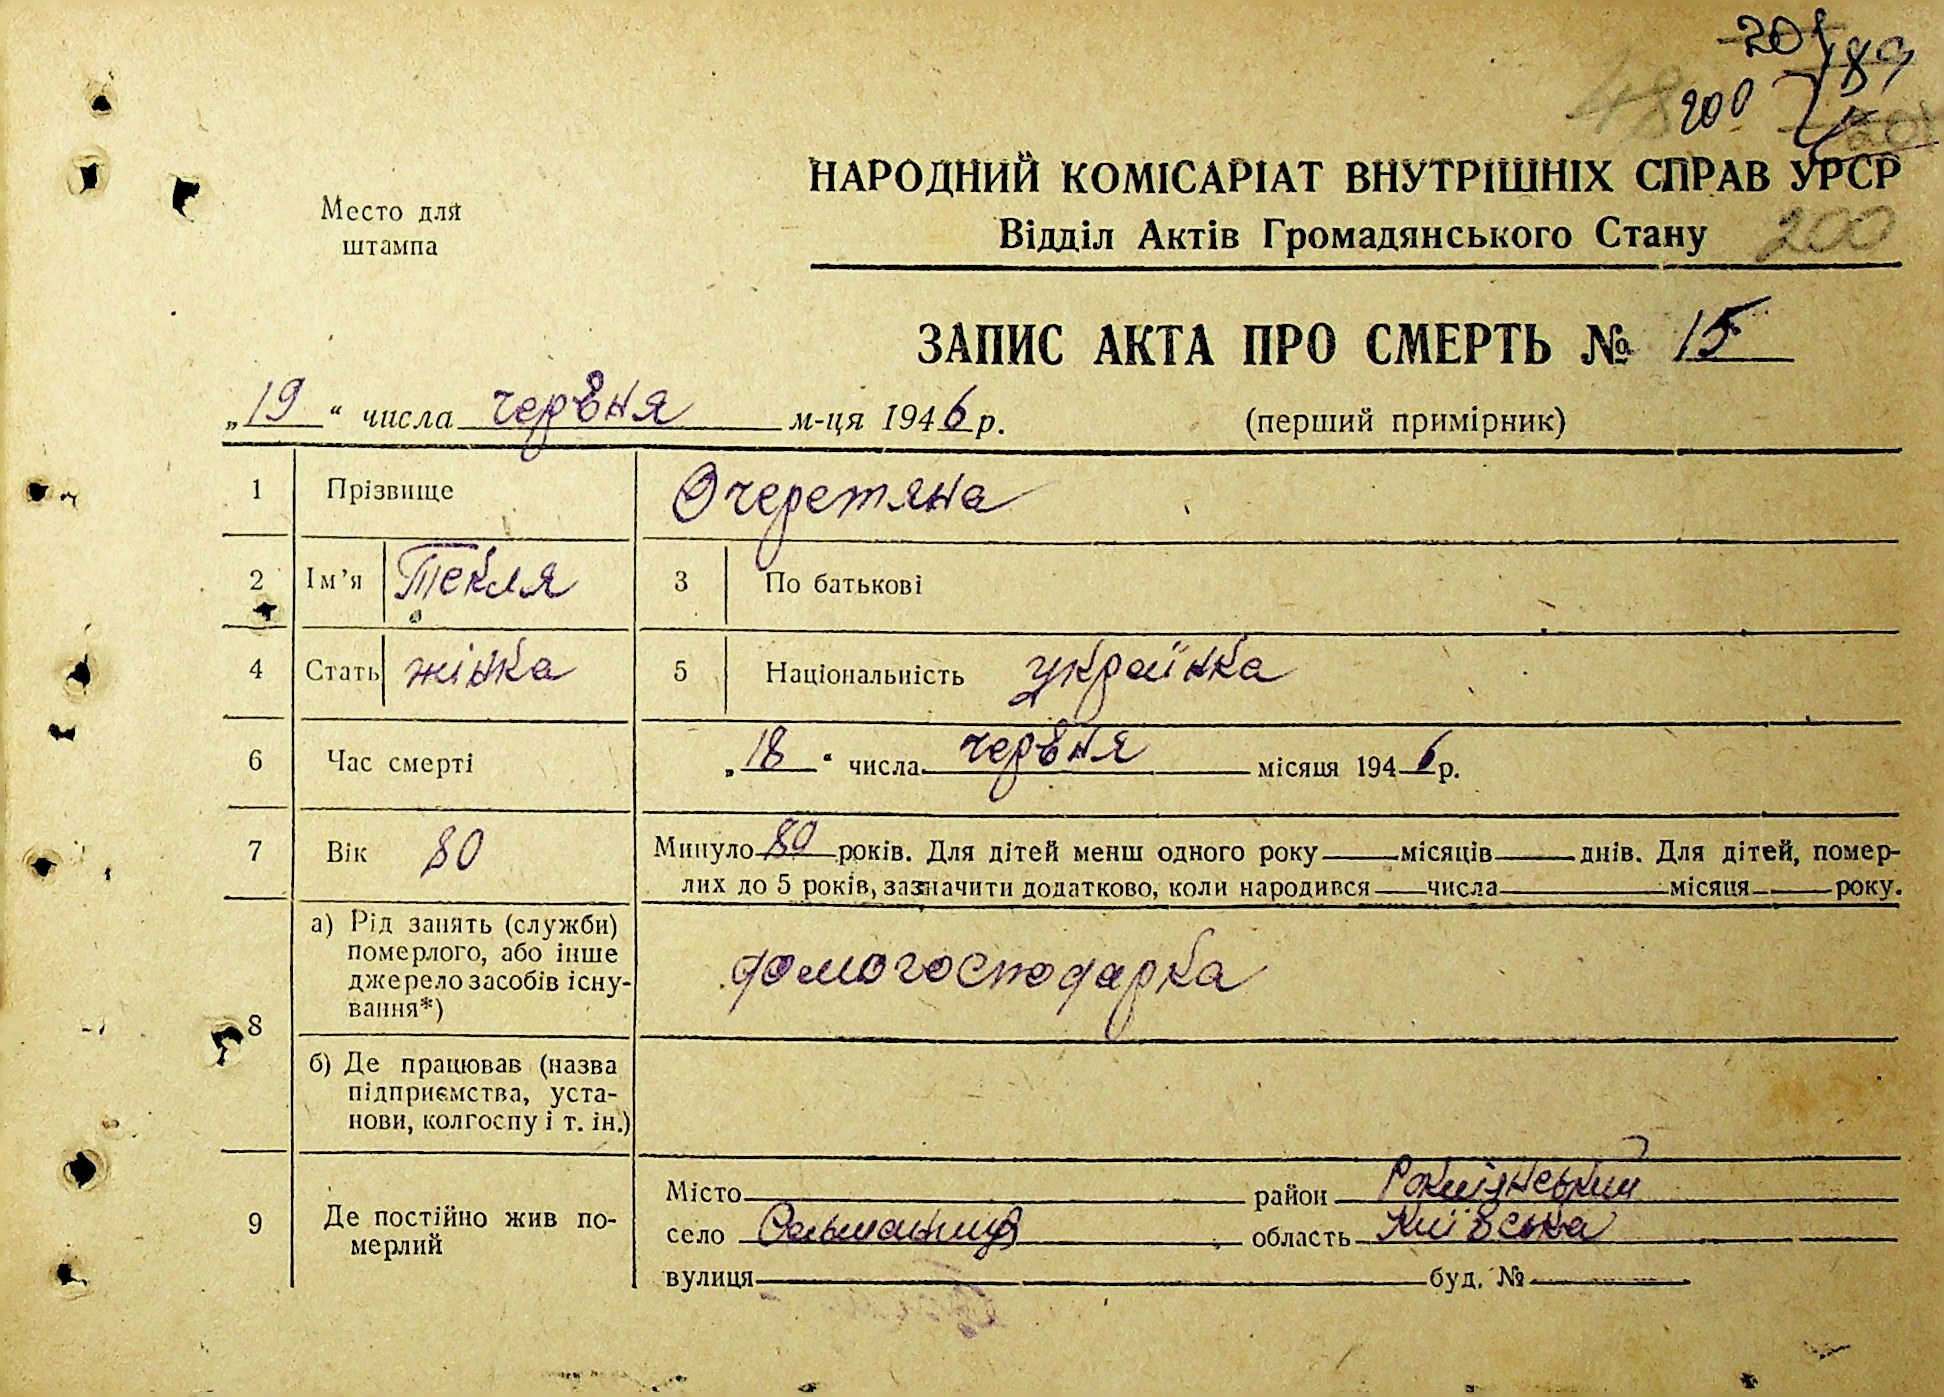 201 189
48 200
НАРОДНИЙ КОМІСАРІАТ ВНУТРІШНІХ СПРАВ УРСР
Відділ Актів Громадянського Стану 200
Место для
штампа
ЗАПИС АКТА ПРО СМЕРТЬ № 15
„19“ числа червня м-ця 1946 р.
(перший примірник)
1 Прізвище Очеретяна
2 Ім’я Текля 3 По батькові
4 Стать жінка 5 Національність українка
6 Час смерті „18“ числа червня місяця 1946 р.
7 Вік 80 Минуло 80 років. Для дітей менш одного року місяців днів. Для дітей, помер-
лих до 5 років, зазначити додатково, коли народився числа місяця року.
8 а) Рід занять (служби)
померлого, або інше
джерело засобів існу-
вання*)
домогосподарка
б) Де працював (назва
підприємства, уста-
нови, колгоспу і т. ін.)
9 Де постійно жив по-
мерлий
Місто район
село область Київська
вулиця буд. №